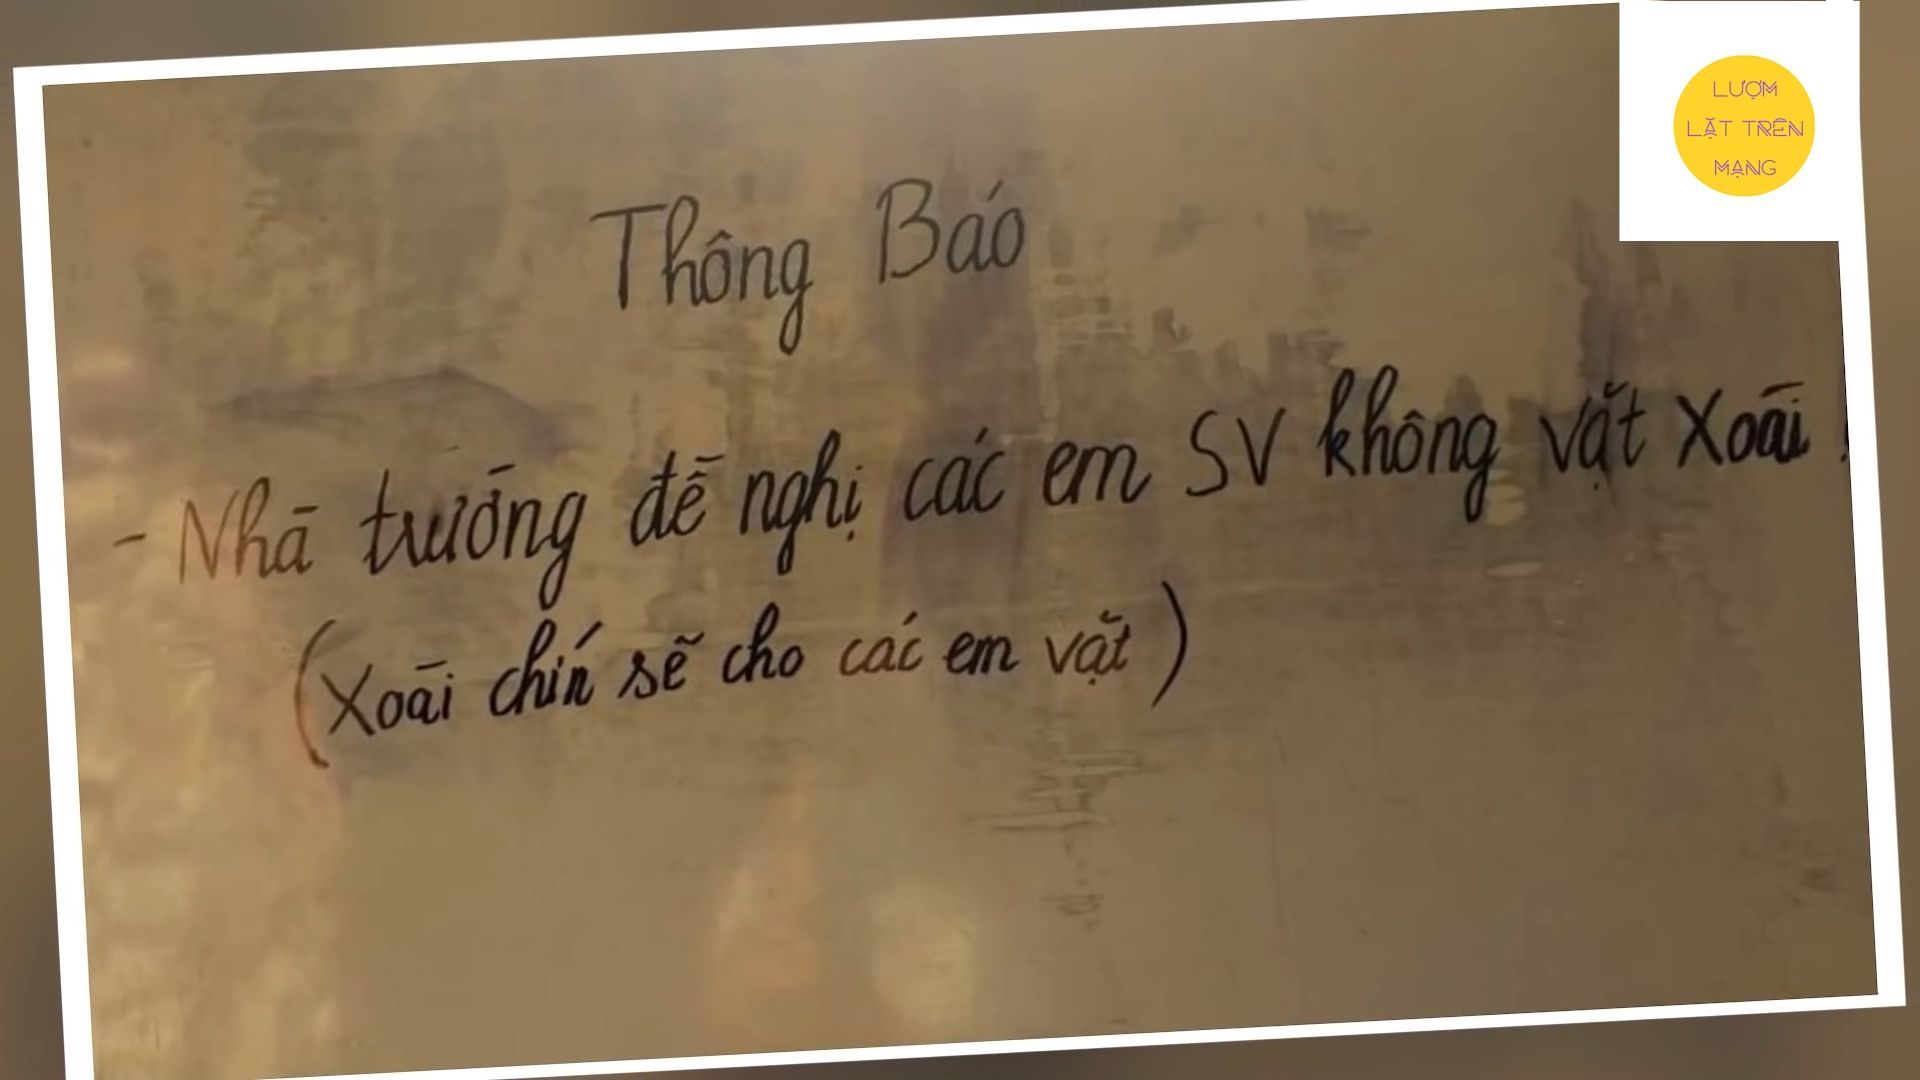 LƯỢM
LẶT TRÊN
MẠNG
Thông Báo
- Nhà trường đề nghị các em SV không vặt Xoài !
(Xoài chín sẽ cho các em vặt)